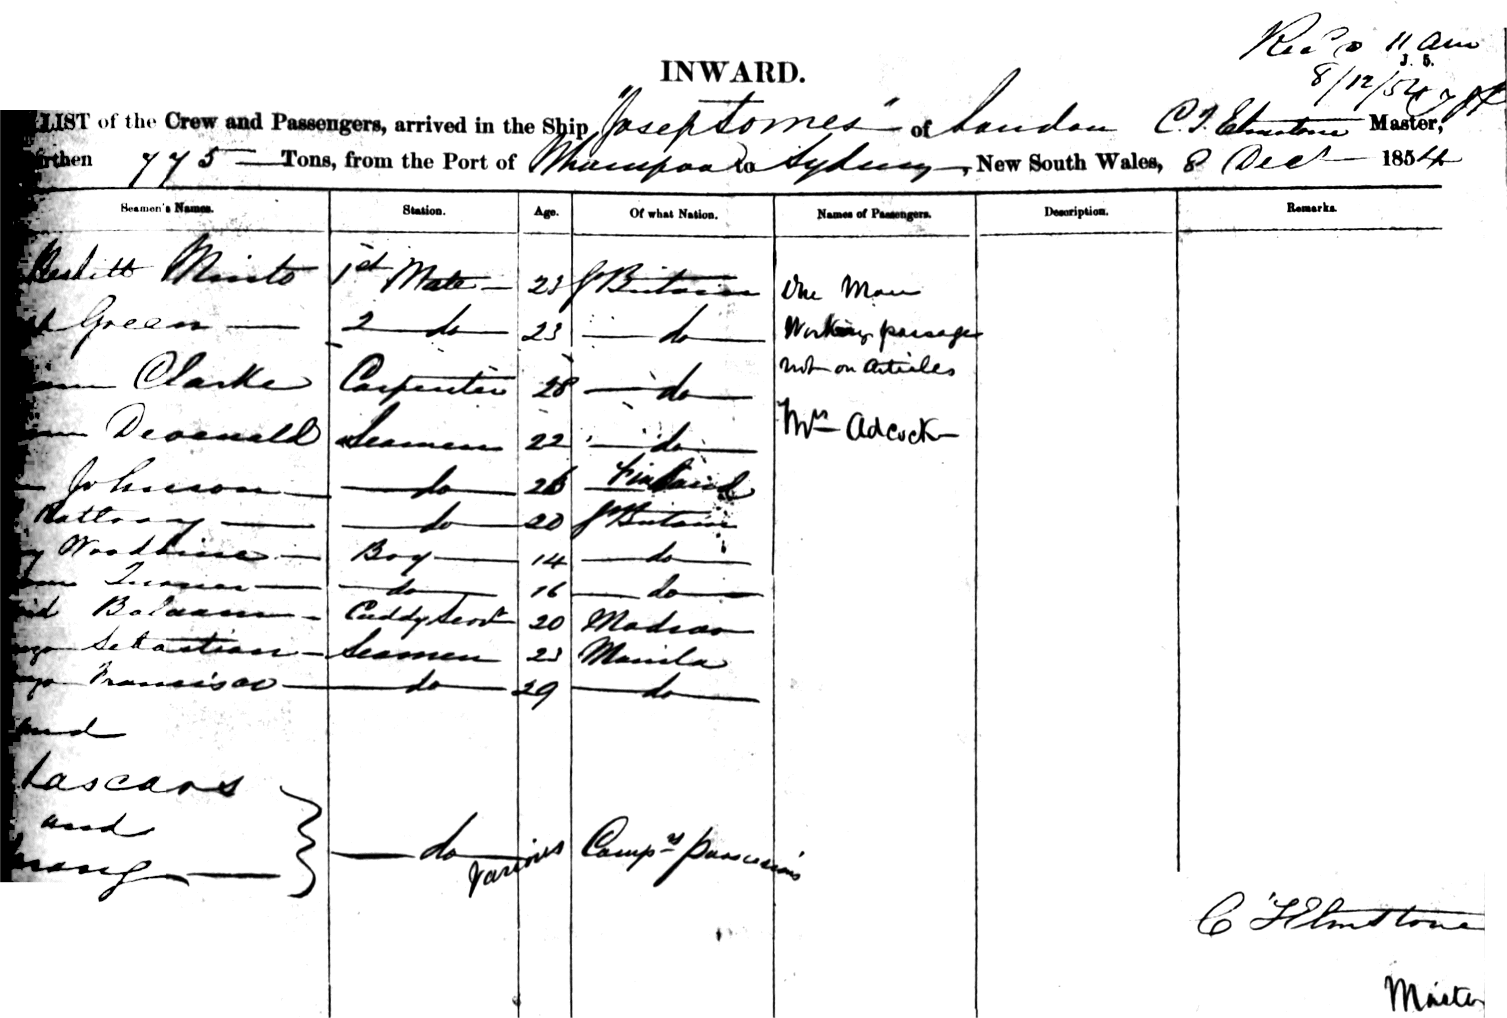 Recd 11 am
J. 5.
8/12/54
INWARD.
LIST of the Crew and Passengers, arrived in the Ship "Josep Somes" of London C. F. Elmstone Master,
rthen 775 Tons, from the Port of Whampoa to Sydney, New South Wales, 8 Decr 1854
Seamen's Names. Station. Age. Of what Nation. Names of Passengers. Description. Remarks.
Minto 1st Mate 23 G Britain One Man
Green 2 do 23 do Working passage
not on articles
Clarke Carpenter 28 do
Mrs Adcock
Devenald Seamen 22 do
Johnson do 26 Finland
Rattray do 20 G Britain
y Woodbine Boy 14 do
Turner do 16 do
id Balaam Cuddy Servt 20 Madras
Sebastian Seamen 23 Manila
Francisco do 29 do
and
Lascars
and
rang do various Compys possessions
C F Elmstone
Master